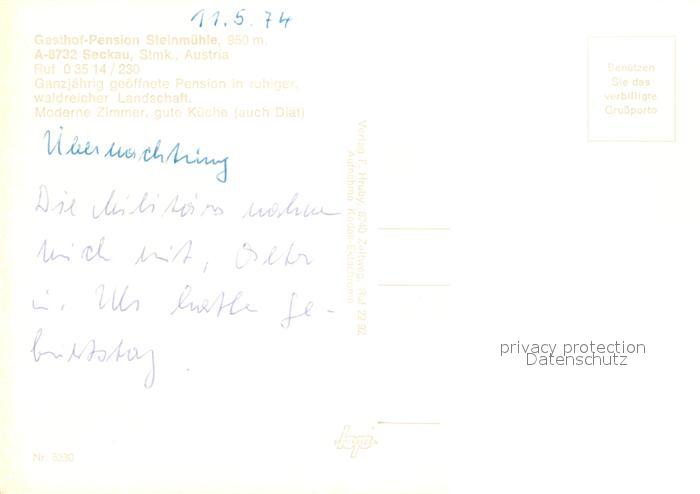 11.5.74
Gasthof-Pension Steinmühle, 950 m,
A-8732 Seckau, Stmk., Austria
Ruf 0 35 14 / 230
Ganzjährig geöffnete Pension in ruhiger,
waldreicher Landschaft.
Moderne Zimmer, gute Küche (auch Diät)
Übernachtung
Die Militärs nahm
mich mit,
hatte Ge-
burtstag.
Benützen
Sie das
verbilligte
Grußporto
Verlag F. Hruby, 8740 Zeltweg, Ruf 22 92
Aufnahme Kodak-Ektachrome
privacy protection
Datenschutz
Nr. 5230